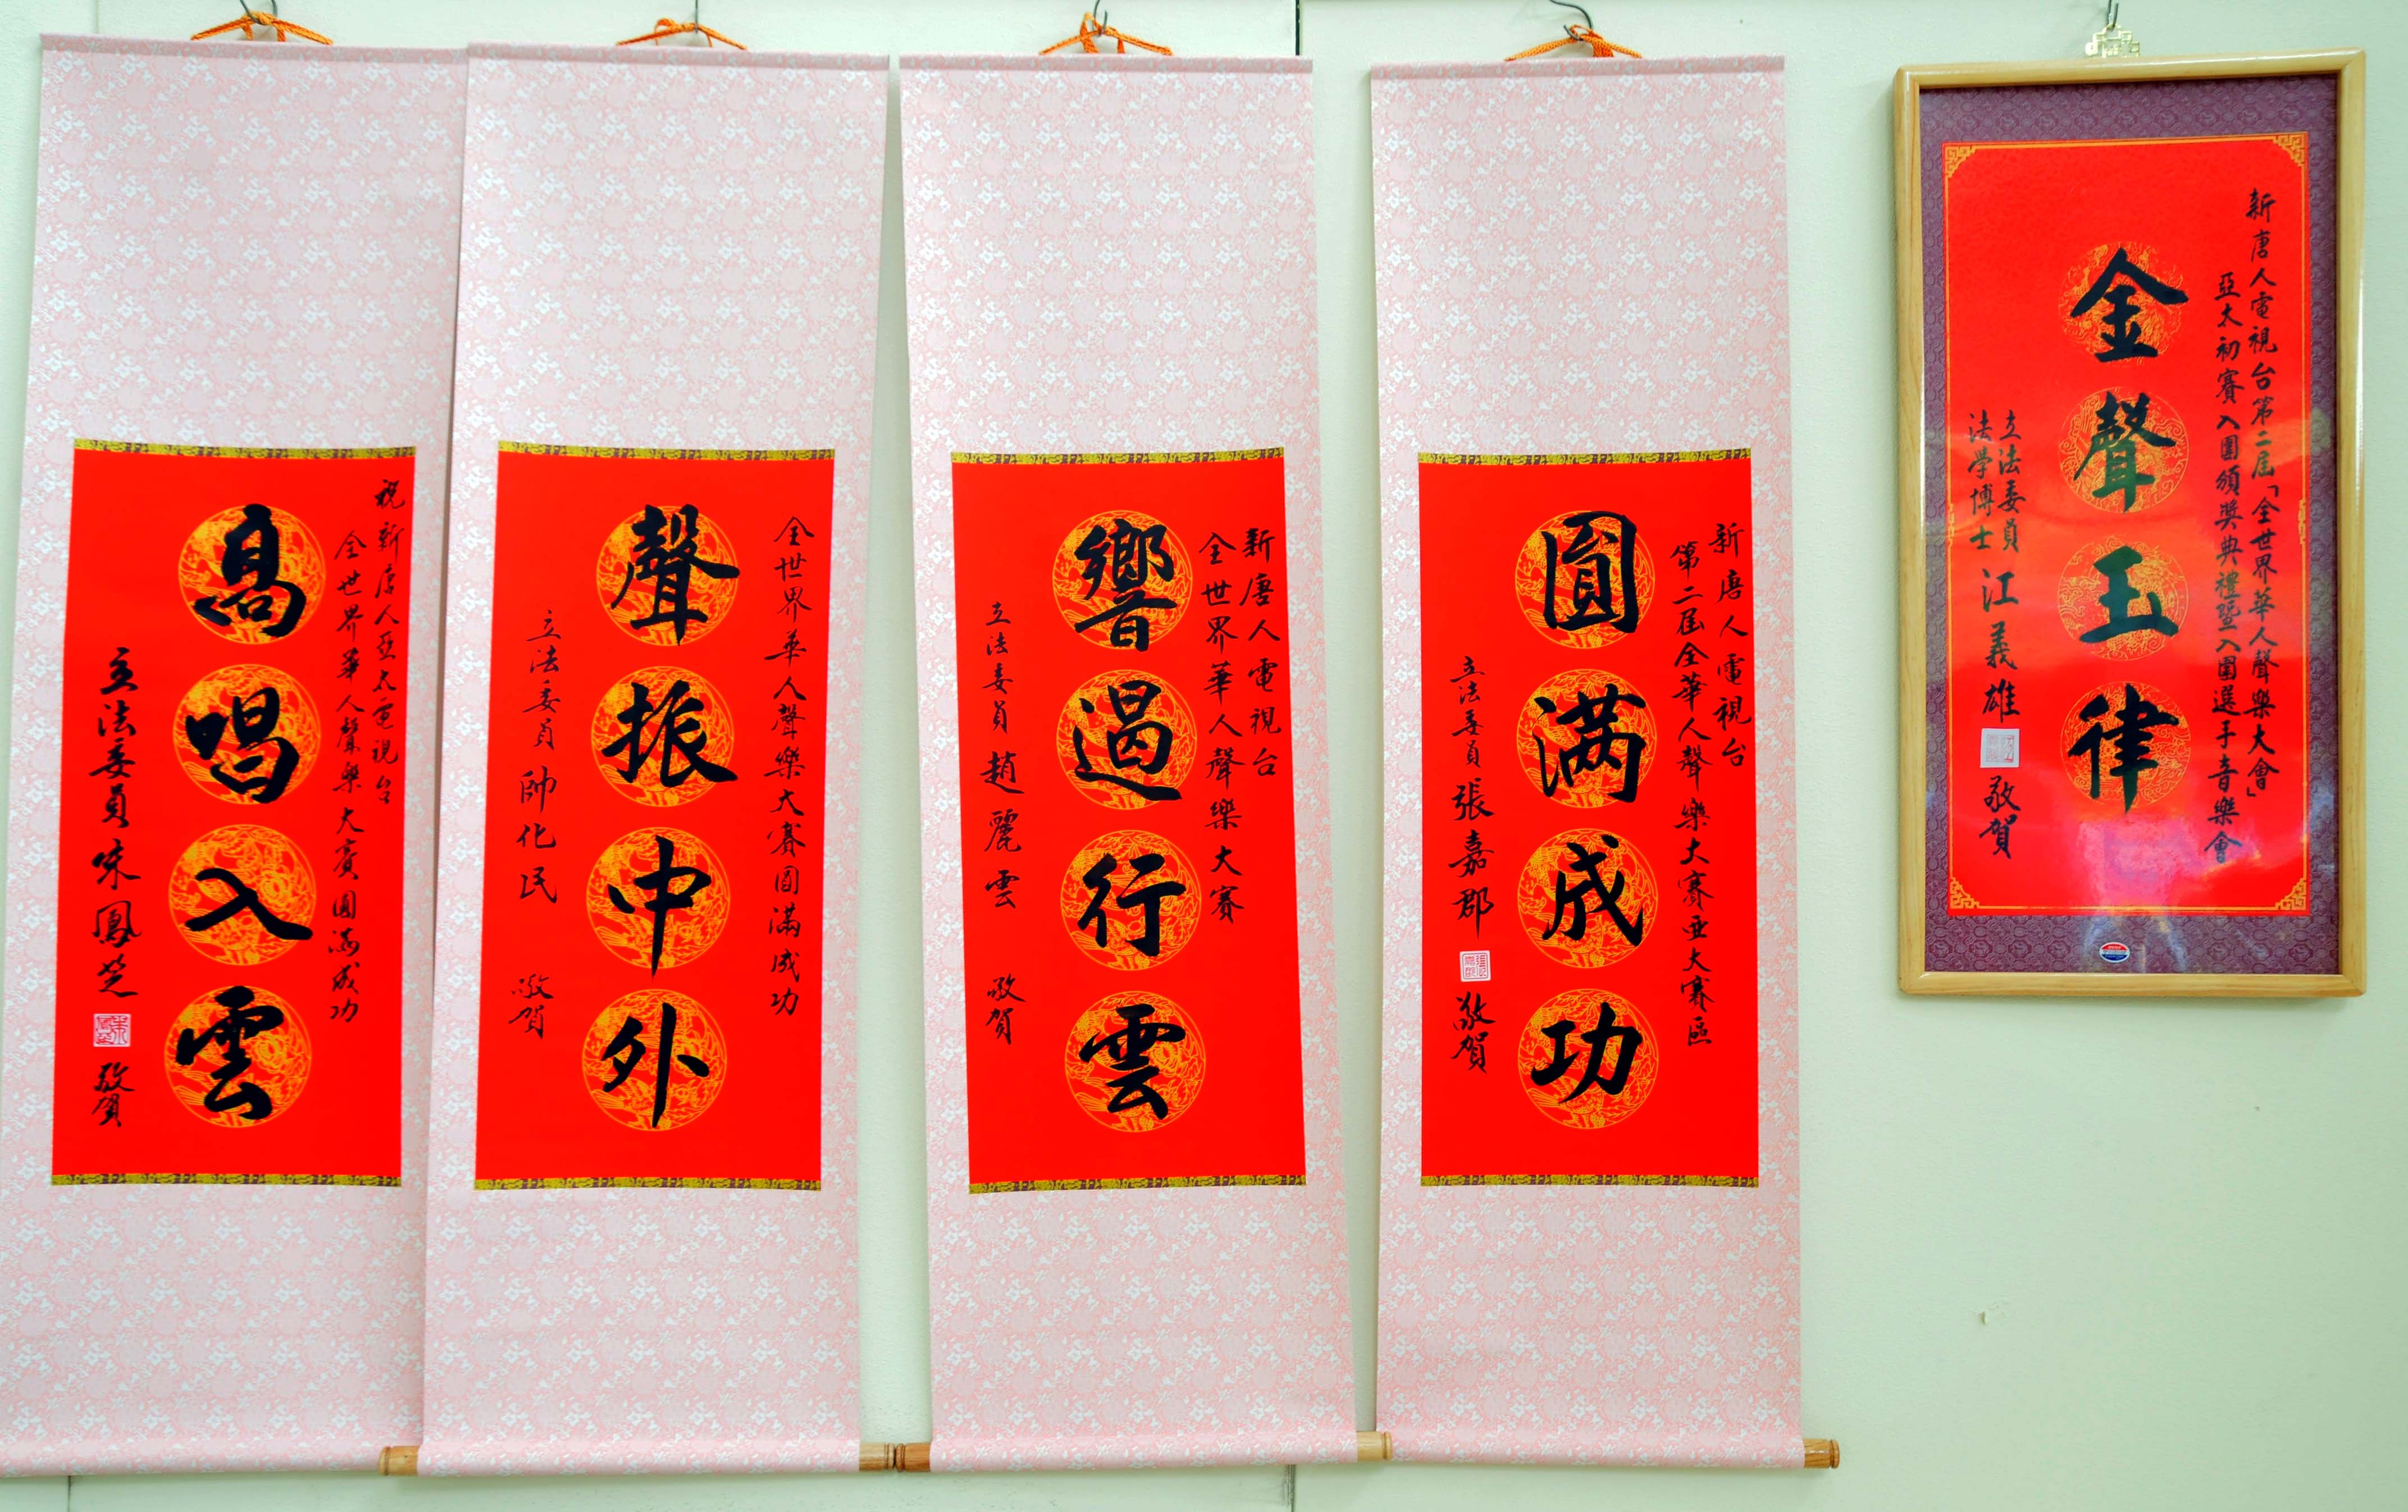 祝新唐人亞太電視台
全世界華人聲樂大賽圓滿成功
高唱入雲
立法委員
鳳芝
敬賀
全世界華人聲樂大賽圓滿成功
聲振中外
立法委員 帥化民 敬賀
新唐人電視台
全世界華人聲樂大賽
響遏行雲
立法委員 趙麗雲 敬賀
新唐人電視台
第二屆全華人聲樂大賽亞太賽區
圓满成功
立法委員 張嘉郡 敬賀
新唐人電視台第二屆「全世界華人聲樂大會」
亞太初賽入圍頒獎典禮暨入圍選手音樂會
金聲玉律
立法委員
法學博士
江義雄 敬賀